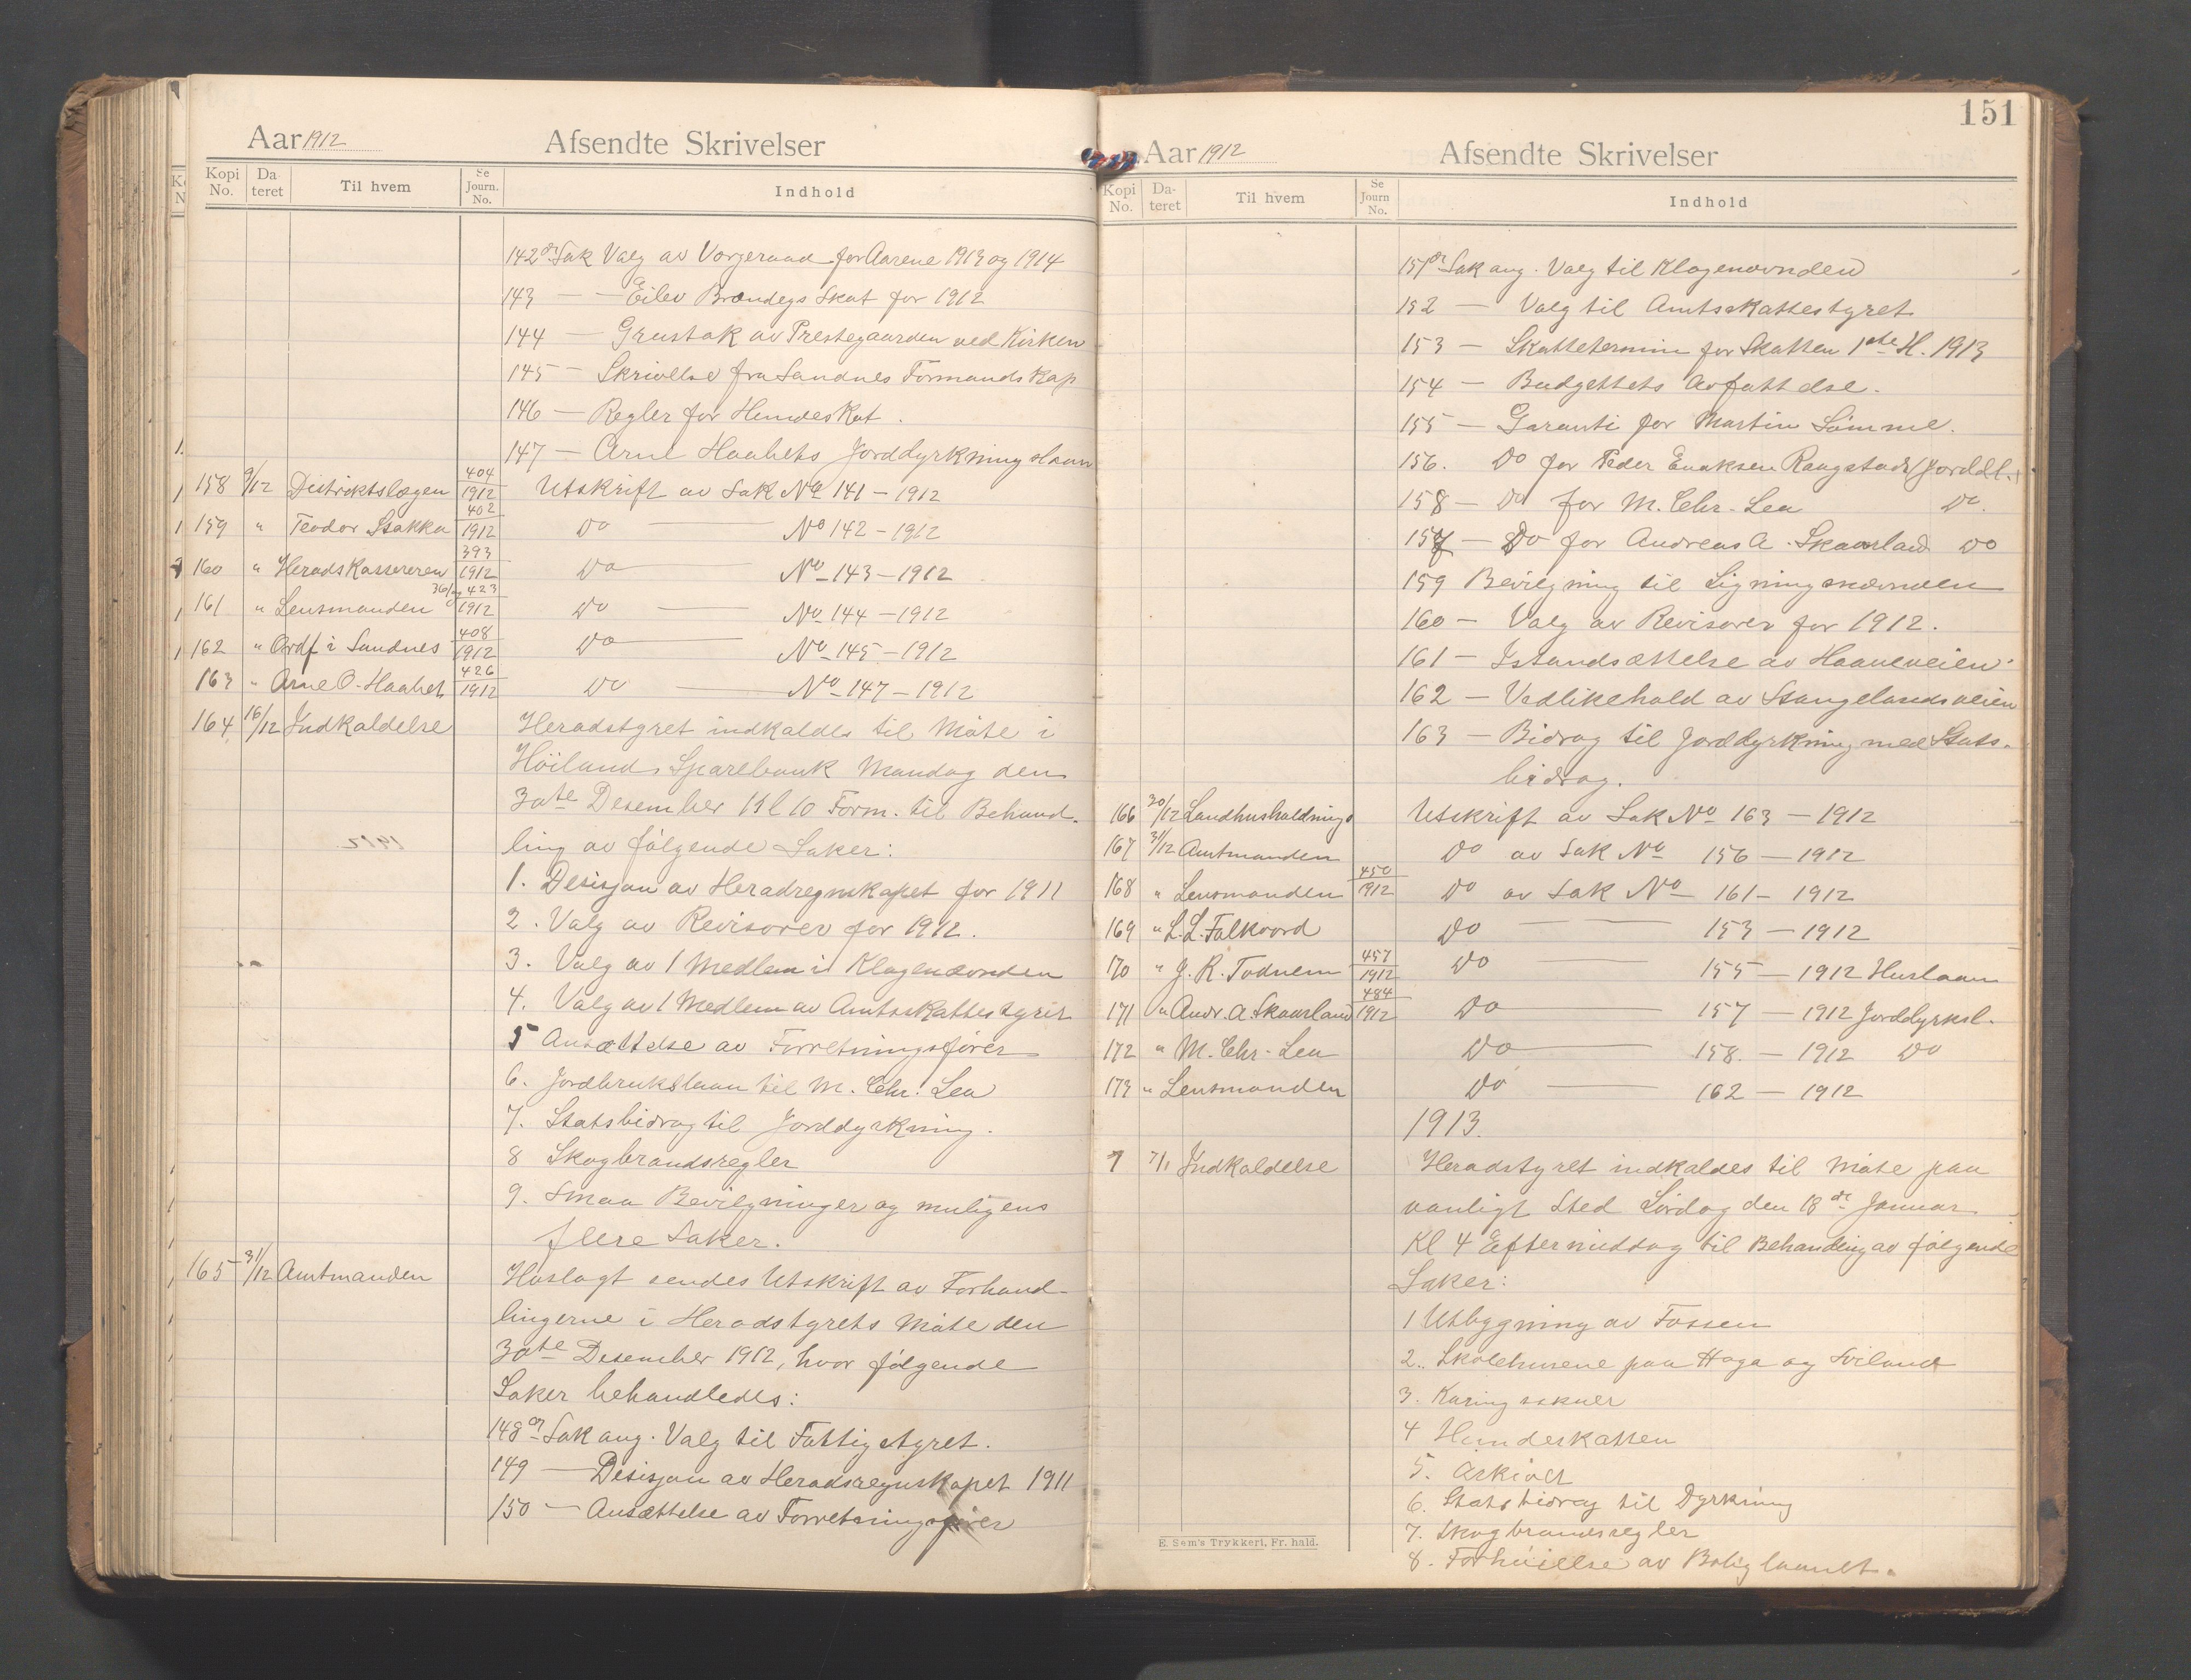 Aar 1912 Afsendte Skrivelser
Kopi No. Da teret Til hvem Se Journ. No. Indhold
142 de Sak Valg av Vergeraad for Aarene 1913 og 1914
143 — — Eilev Brandegs Skat for 1912
144 — Grustak av Prestegaarden ved Kirken
145 — Skrivelse fra Sandnes Formandskap
146 — Regler for Hundeskat.
147 — Arne Haabets Jorddyrkningslaan
158 9/12 Distriktslægen 404/1912 Utskrift av Sak No 141 — 1912
159 " Teodor Stakka 402/1912 Do — No 142 — 1912
160 " Heradskassereren 393/1912 Do — No 143 — 1912
161 " Lensmanden 423/1912 Do — No 144 — 1912
162 " Ordf. i Sandnes 408/1912 Do — No 145 — 1912
163 " Arne O. Haabet 426/1912 Do — No 147 — 1912
164 16/12 Indkaldelse Heradstyret indkaldes til Møte i
Höiland Sparebank Mandag den
30te Desember Kl 10 Form. til Behand-
ling av følgende Saker:
1. Desisjon av Heradregnskapet for 1911
2. Valg av Revisorer for 1912.
3. Valg av 1 Medlem i Klagenævnden
4. Valg av 1 Medlem av Amtsskattestyret
5 Ansættelse av Forretningsfører
6. Jordbrukslaan til M. Chr. Lea
7. Statsbidrag til Jorddyrkning.
8 Skogbrandsregler
9. Smaa Bevilgninger og muligens
flere Saker.
165 31/12 Amtmanden Hoslagt sendes Utskrift av Forhand-
lingerne i Heradstyrets Møte den
30te Desember 1912, hvor følgende
Saker behandledes:
148 de Sak ang. Valg til Fattigstyret.
149 — Desisjon av Heradsregnskapet 1911
150 — Ansættelse av Forretningsfører
151
Aar 1912 Afsendte Skrivelser
Kopi No. Da- teret Til hvem Se Journ No. Indhold
151 de Sak ang. Valg til Klagenævnden
152 — Valg til Amtsskattestyret
153 — Skattetermin for Skatten 1ste H. 1913
154 — Budgettets Avfattelse.
155 — Garanti for Martin Sömme.
156. Do for Peder Enoksen Raugstad (Jorddl.)
158 — Do for M. Chr. Lea Do.
157 — Do for Andreas A. Skaarland Do
159 Bevilgning til Ligningsnævnden
160 — Valg av Revisorer for 1912.
161 — Istandsættelse av Haaveveien
162 — Vedlikehold av Stangelandsveien
163 — Bidrag til Jorddyrkning med Stats-
bidrag.
166 30/12 Landhusholdnings Utskrift av Sak No 163 — 1912
167 31/12 Amtmanden Do av Sak No 156 — 1912
168 " Lensmanden 450/1912 Do av Sak No 161 — 1912
169 " L. L. Folkvord Do — 153 — 1912
170 " J. R. Todnem 457/1912 Do — 155 — 1912 Huslaan
171 " Andr. A. Skaarland 484/1912 Do — 157 — 1912 Jorddyrksl.
172 " M. Chr. Lea Do — 158. — 1912 Do
173 " Lensmanden Do — 162 — 1912
1913.
1 7/1 Indkaldelse Heradstyret indkaldes til Møte paa
vanligt Sted Lørdag den 18de Januar
Kl 4 Eftermiddag til Behandling av følgende
Saker:
1 Utbygning av Fossen
2. Skolehusene paa Hoga og Sviland
3. Kuring saker
4 Hundeskatten
5. Arkivet
6. Statsbidrag til Dyrkning
7. Skogbrandsregler
8. Forhöielse av Boliglaanet.
E. Sem's Trykkeri, Fr. hald.